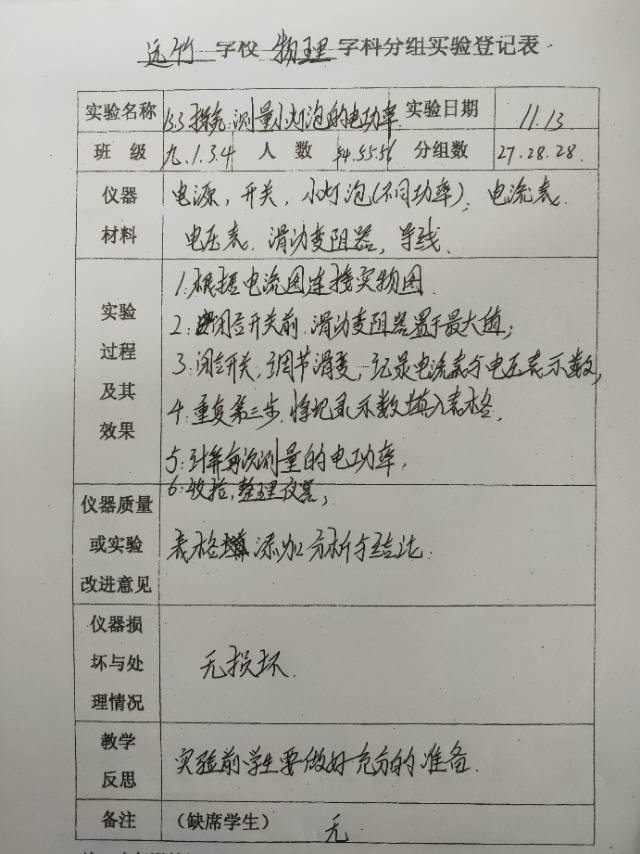 远竹 学校 物理 学科分组实验登记表
实验名称 15.3 探究:测量小灯泡的电功率 实验日期 11.13
班 级 九.1.3.4 人 数 54.55.56 分组数 27.28.28.
仪器材料 电源,开关,小灯泡(不同功率),电流表.
电压表.滑动变阻器,导线.
实验过程及其效果
1.根据电流图连接实物图.
2:闭合开关前.滑动变阻器置于最大值;
3:闭合开关,调节滑变,记录电流表与电压表示数,
4.重复第三步.将记录示数填入表格.
5:计算每次测量的电功率,
6:收捡,整理仪器,
仪器质量或实验改进意见
表格 添加分析与结论.
仪器损坏与处理情况
无损坏.
教学反思
实验前学生要做好充分的准备.
备注 (缺席学生) 无